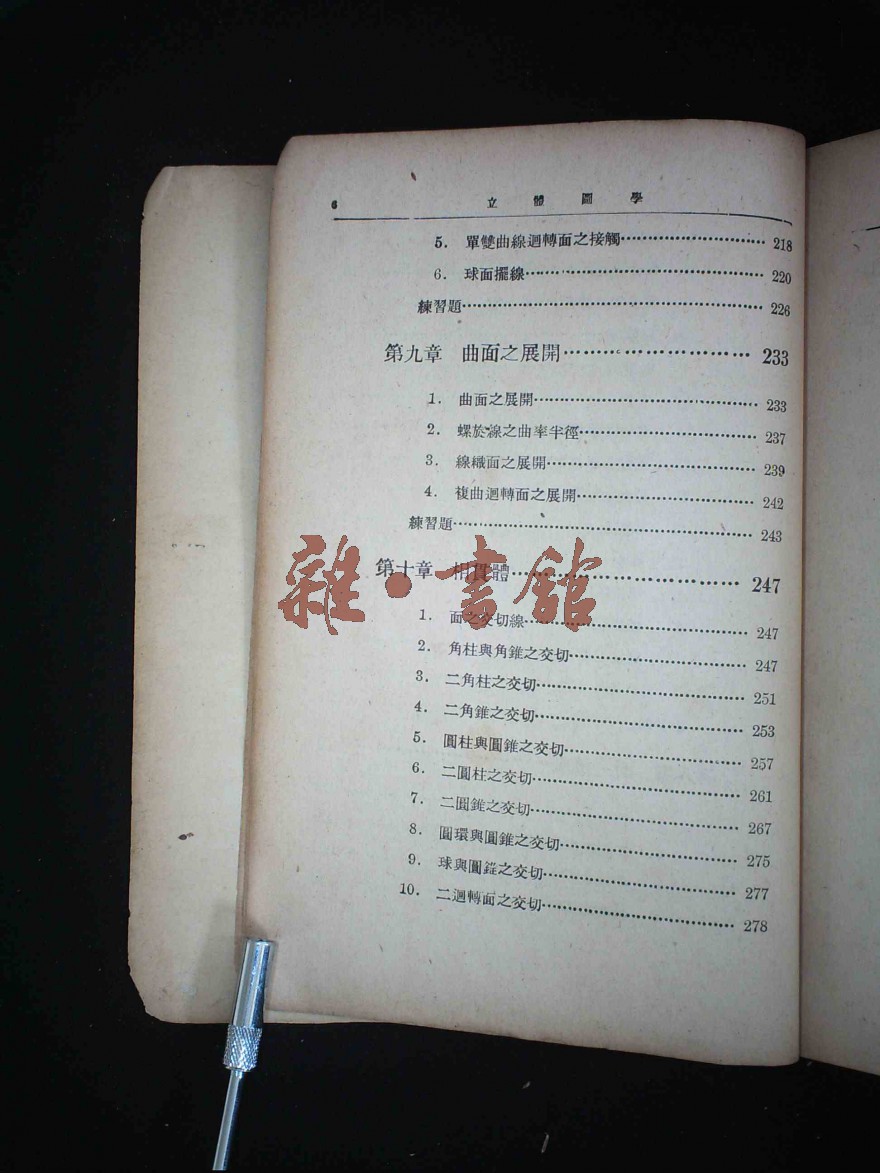 6 立體圖學
5. 單雙曲線迴轉面之接觸 218
6. 球面擺線 220
練習題 226
第九章 曲面之展開 233
1. 曲面之展開 233
2. 螺旋線之曲率半徑 237
3. 線織面之展開 239
4. 複曲迴轉面之展開 242
練習題 243
第十章 相貫體 247
雜·書館
1. 面之交切線 247
2. 角柱與角錐之交切 247
3. 二角柱之交切 251
4. 二角錐之交切 253
5. 圓柱與圓錐之交切 257
6. 二圓柱之交切 261
7. 二圓錐之交切 267
8. 圓環與圓錐之交切 275
9. 球與圓錐之交切 277
10. 二迴轉面之交切 278